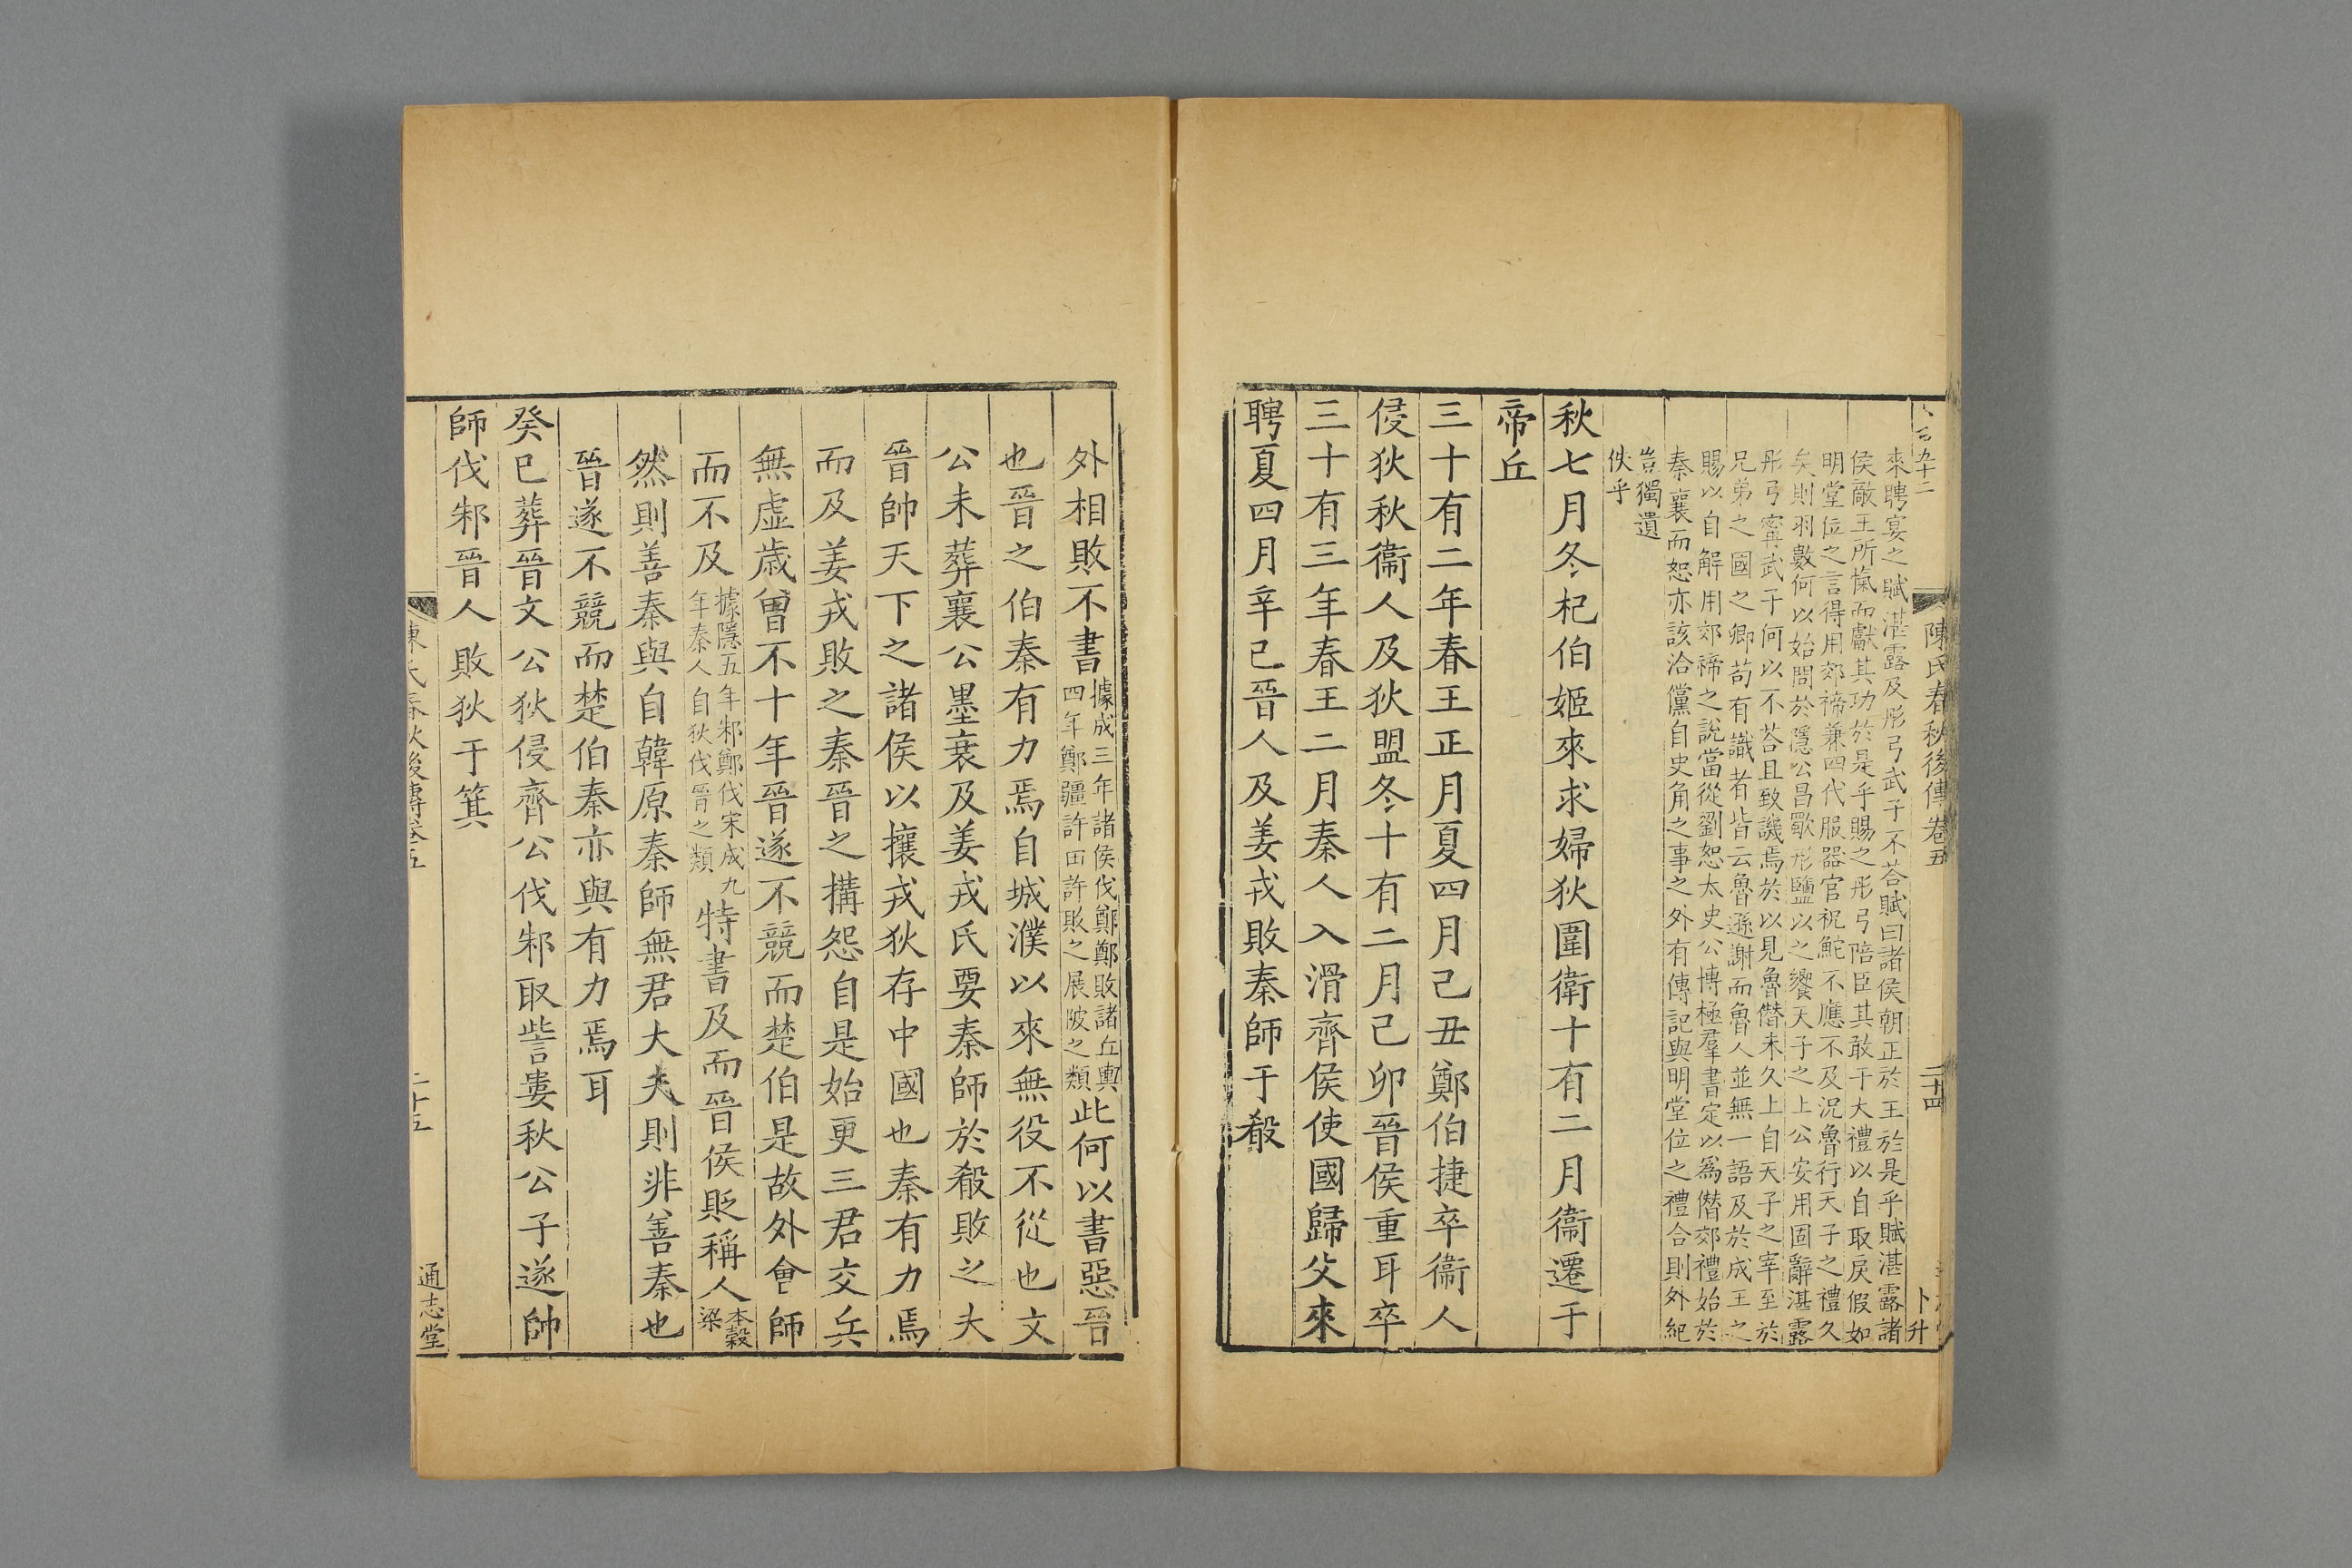 陳氏春秋後傳卷五
二十四
卜升
來聘宴之賦湛露及彤弓武子不荅賦曰諸侯朝正於王於是乎賦湛露諸
侯敵王所愾而獻其功於是乎賜之彤弓陪臣其敢干大禮以自取戾假如
明堂位之言得用郊禘兼四代服器官祝鮀不應不及況魯行天子之禮久
矣則羽數何以始問於隱公昌歜形鹽以之饗天子之上公安用固辭湛露
彤弓甯武子何以不荅且致譏焉於以見魯僭未久上自天子之宰至於
兄弟之國之卿苟有識者皆云魯遜謝而魯人並無一語及於成王之
賜以自解用郊禘之說當從劉恕太史公博極羣書定以爲僭郊禮始於
秦襄而恕亦該洽儻自史角之事之外有傳記與明堂位之禮合則外紀
豈獨遺
佚乎
秋七月冬杞伯姬來求婦狄圍衛十有二月衞遷于
帝丘
三十有二年春王正月夏四月己丑鄭伯捷卒衞人
侵狄秋衞人及狄盟冬十有二月己卯晉侯重耳卒
三十有三年春王二月秦人入滑齊侯使國歸父來
聘夏四月辛巳晉人及姜戎敗秦師于殽
外相敗不書據成三年諸侯伐鄭鄭敗諸丘輿
四年鄭疆許田許敗之展陂之類此何以書惡晉
也晉之伯秦有力焉自城濮以來無役不從也文
公未葬襄公墨衰及姜戎氏要秦師於殽敗之夫
晉帥天下之諸侯以攘戎狄存中國也秦有力焉
而及姜戎敗之秦晉之搆怨自是始更三君交兵
無虛歲曾不十年晉遂不競而楚伯是故外會師
而不及據隱五年邾鄭伐宋成九
年秦人自狄伐晉之類特書及而晉侯貶稱人本穀
梁
然則善秦與自韓原秦師無君大夫則非善秦也
晉遂不競而楚伯秦亦與有力焉耳
癸巳葬晉文公狄侵齊公伐邾取訾婁秋公子遂帥
師伐邾晉人敗狄于箕
陳氏春秋後傳卷五
二十五
通志堂